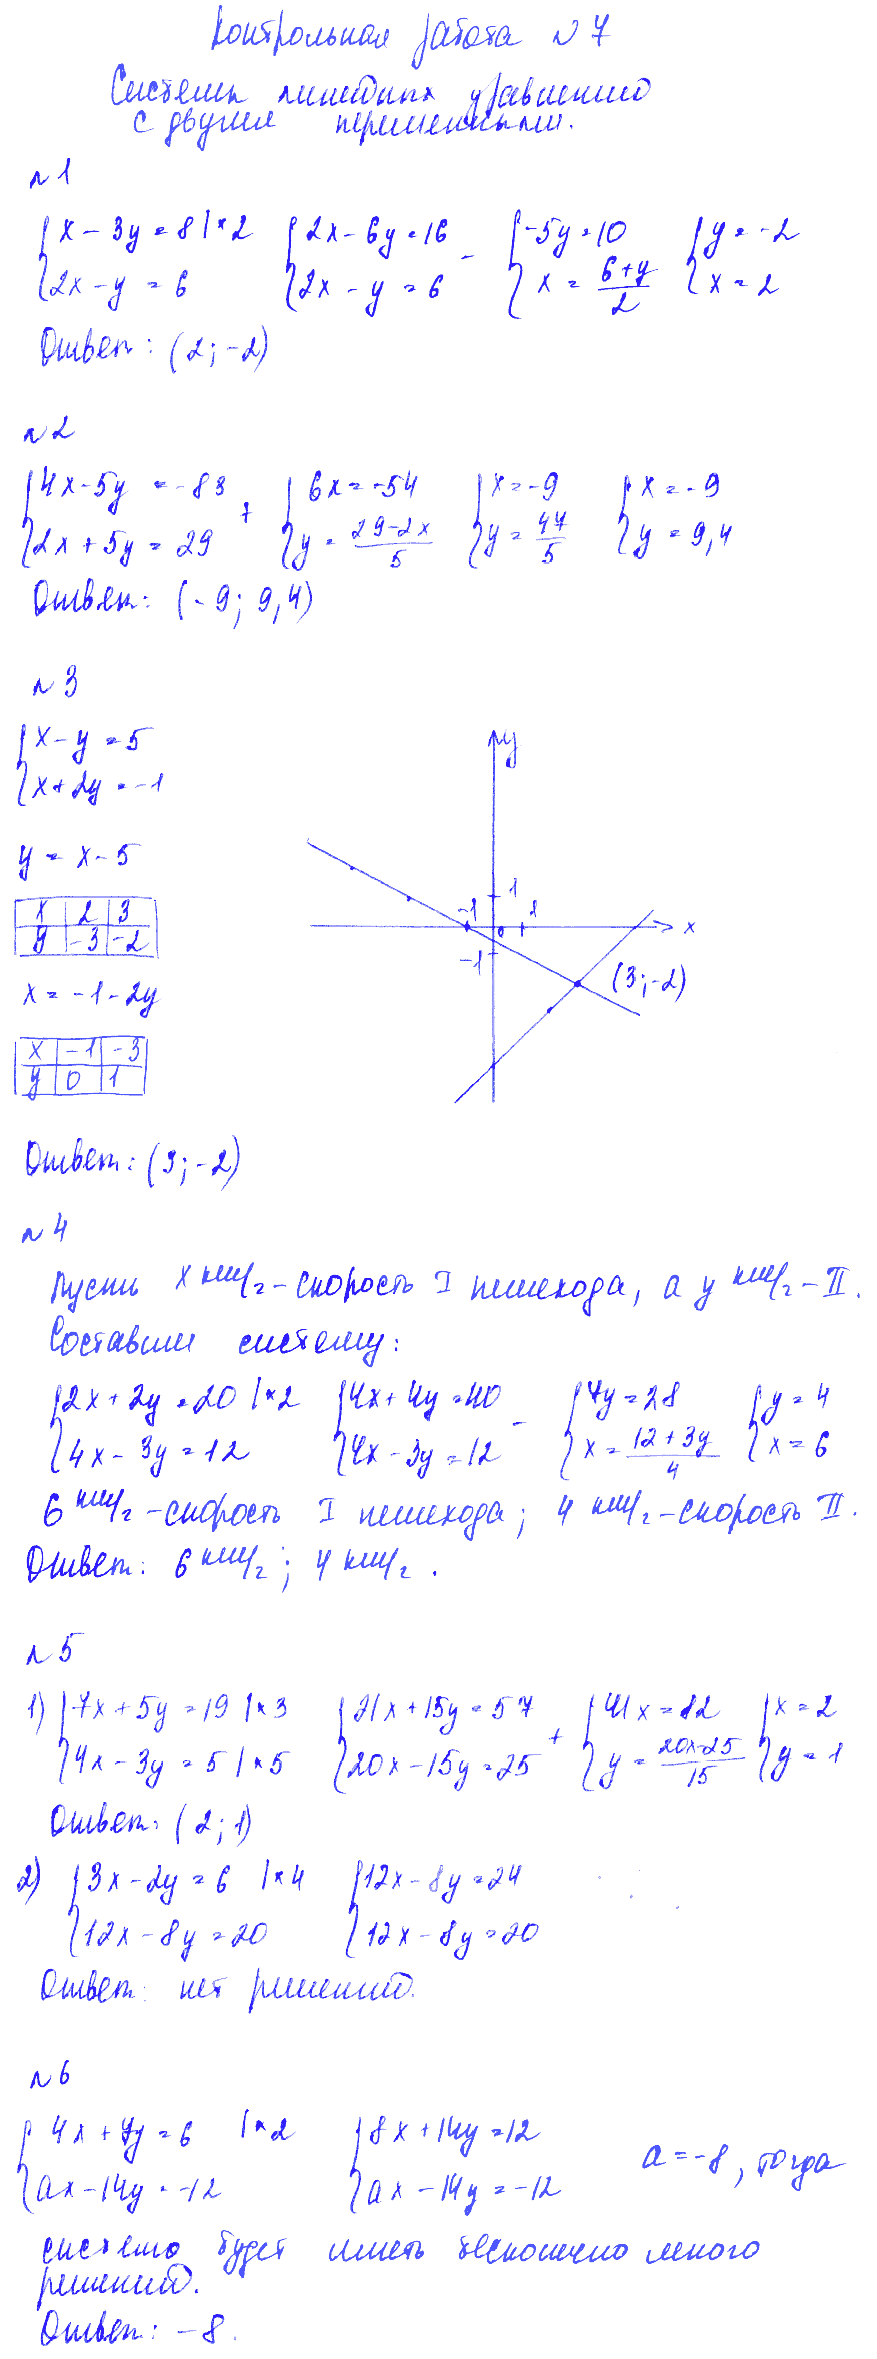 Контрольная работа №7
Системы линейных уравнений
с двумя переменными.
№1
{x - 3y = 8 | * 2 {2x - 6y = 16 - {-5y = 10 {y = -2
{2x - y = 6 {2x - y = 6 {x = (6+y)/2 {x = 2
Ответ: (2; -2)
№2
{4x - 5y = -83 + {6x = -54 {x = -9 {x = -9
{2x + 5y = 29 {y = (29-2x)/5 {y = 47/5 {y = 9,4
Ответ: (-9; 9,4)
№3
{x - y = 5
{x + 2y = -1
y = x - 5
x 2 3
y -3 -2
x = -1 - 2y
x -1 -3
y 0 1
y
1
-1 0 1 x
-1
(3; -2)
Ответ: (3; -2)
№4
Пусть x км/г - скорость I пешехода, а y км/г - II.
Составим систему:
{2x + 2y = 20 | * 2 {4x + 4y = 40 - {7y = 28 {y = 4
{4x - 3y = 12 {4x - 3y = 12 {x = (12+3y)/4 {x = 6
6 км/г - скорость I пешехода; 4 км/г - скорость II.
Ответ: 6 км/г; 4 км/г.
№5
1) {7x + 5y = 19 | * 3 {21x + 15y = 57 + {41x = 82 {x = 2
{4x - 3y = 5 | * 5 {20x - 15y = 25 {y = (20x-25)/15 {y = 1
Ответ: (2; 1)
2) {3x - 2y = 6 | * 4 {12x - 8y = 24
{12x - 8y = 20 {12x - 8y = 20
Ответ: нет решений.
№6
{4x + 7y = 6 | * 2 {8x + 14y = 12
{ax - 14y = -12 {ax - 14y = -12 a = -8, тогда
система будет иметь бесконечно много
решений.
Ответ: -8.